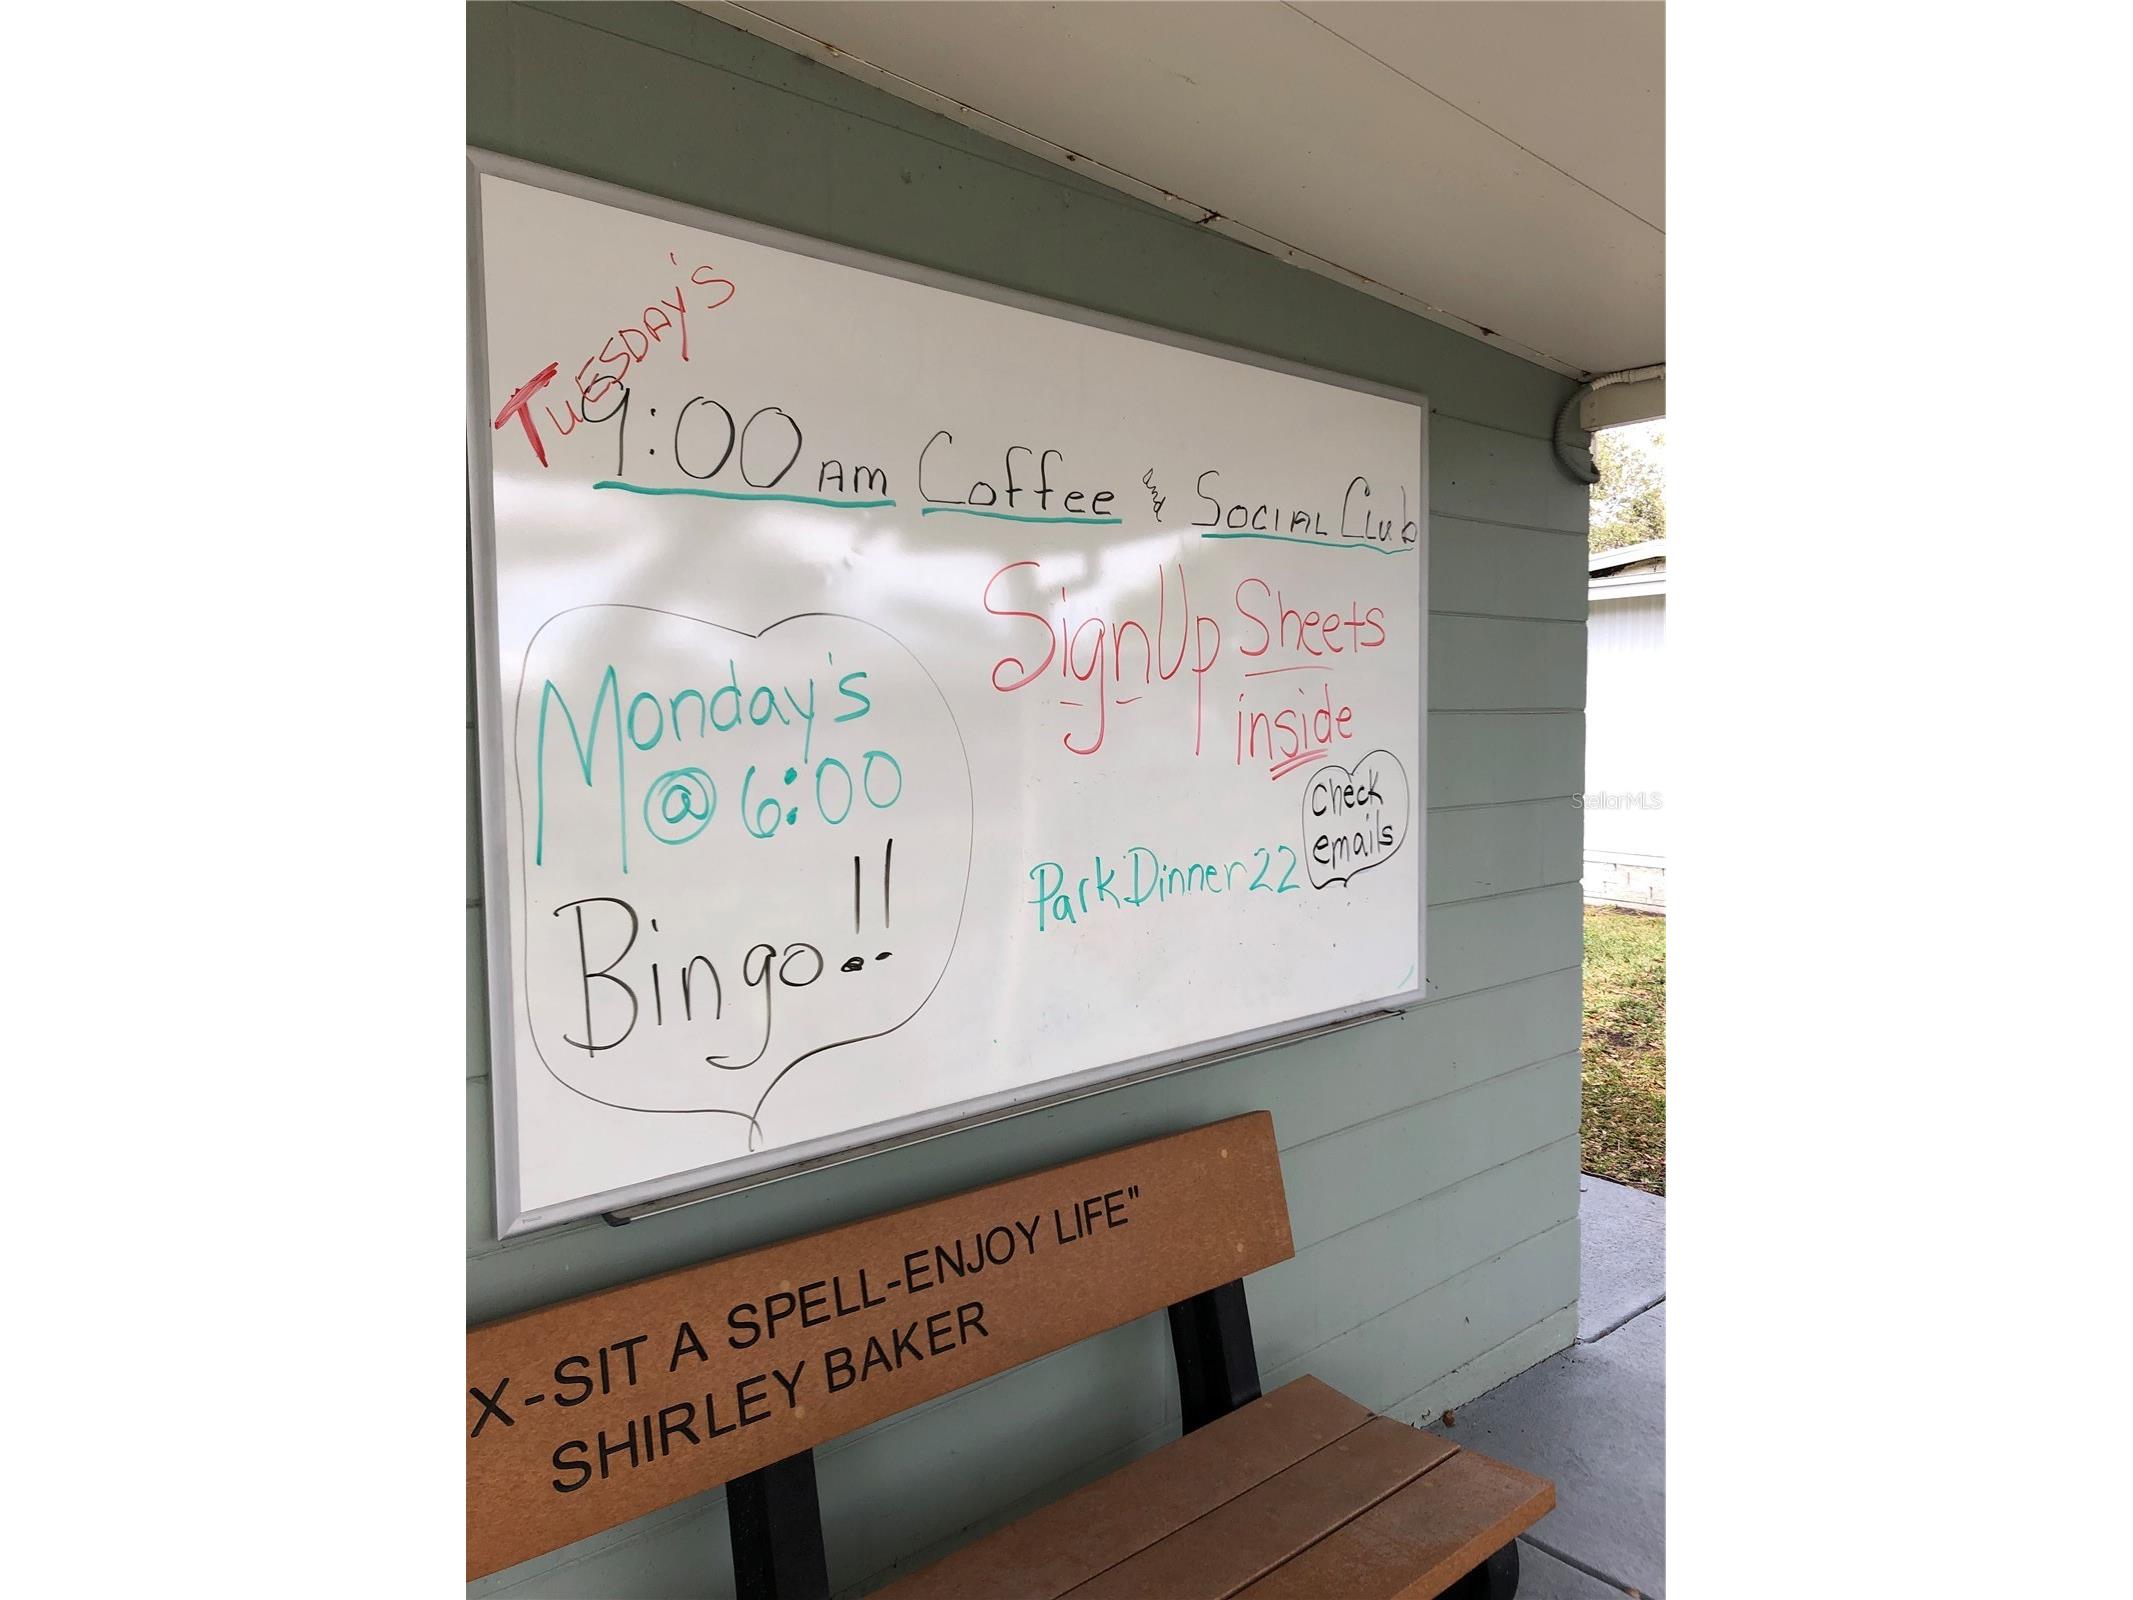 TUESDAY'S
9:00 AM Coffee and SOCIAL CLub
SignUp Sheets
inside
Monday's
@ 6:00
Bingo!!
check
emails
Park Dinner 22
StellarMLS
X-SIT A SPELL-ENJOY LIFE"
SHIRLEY BAKER